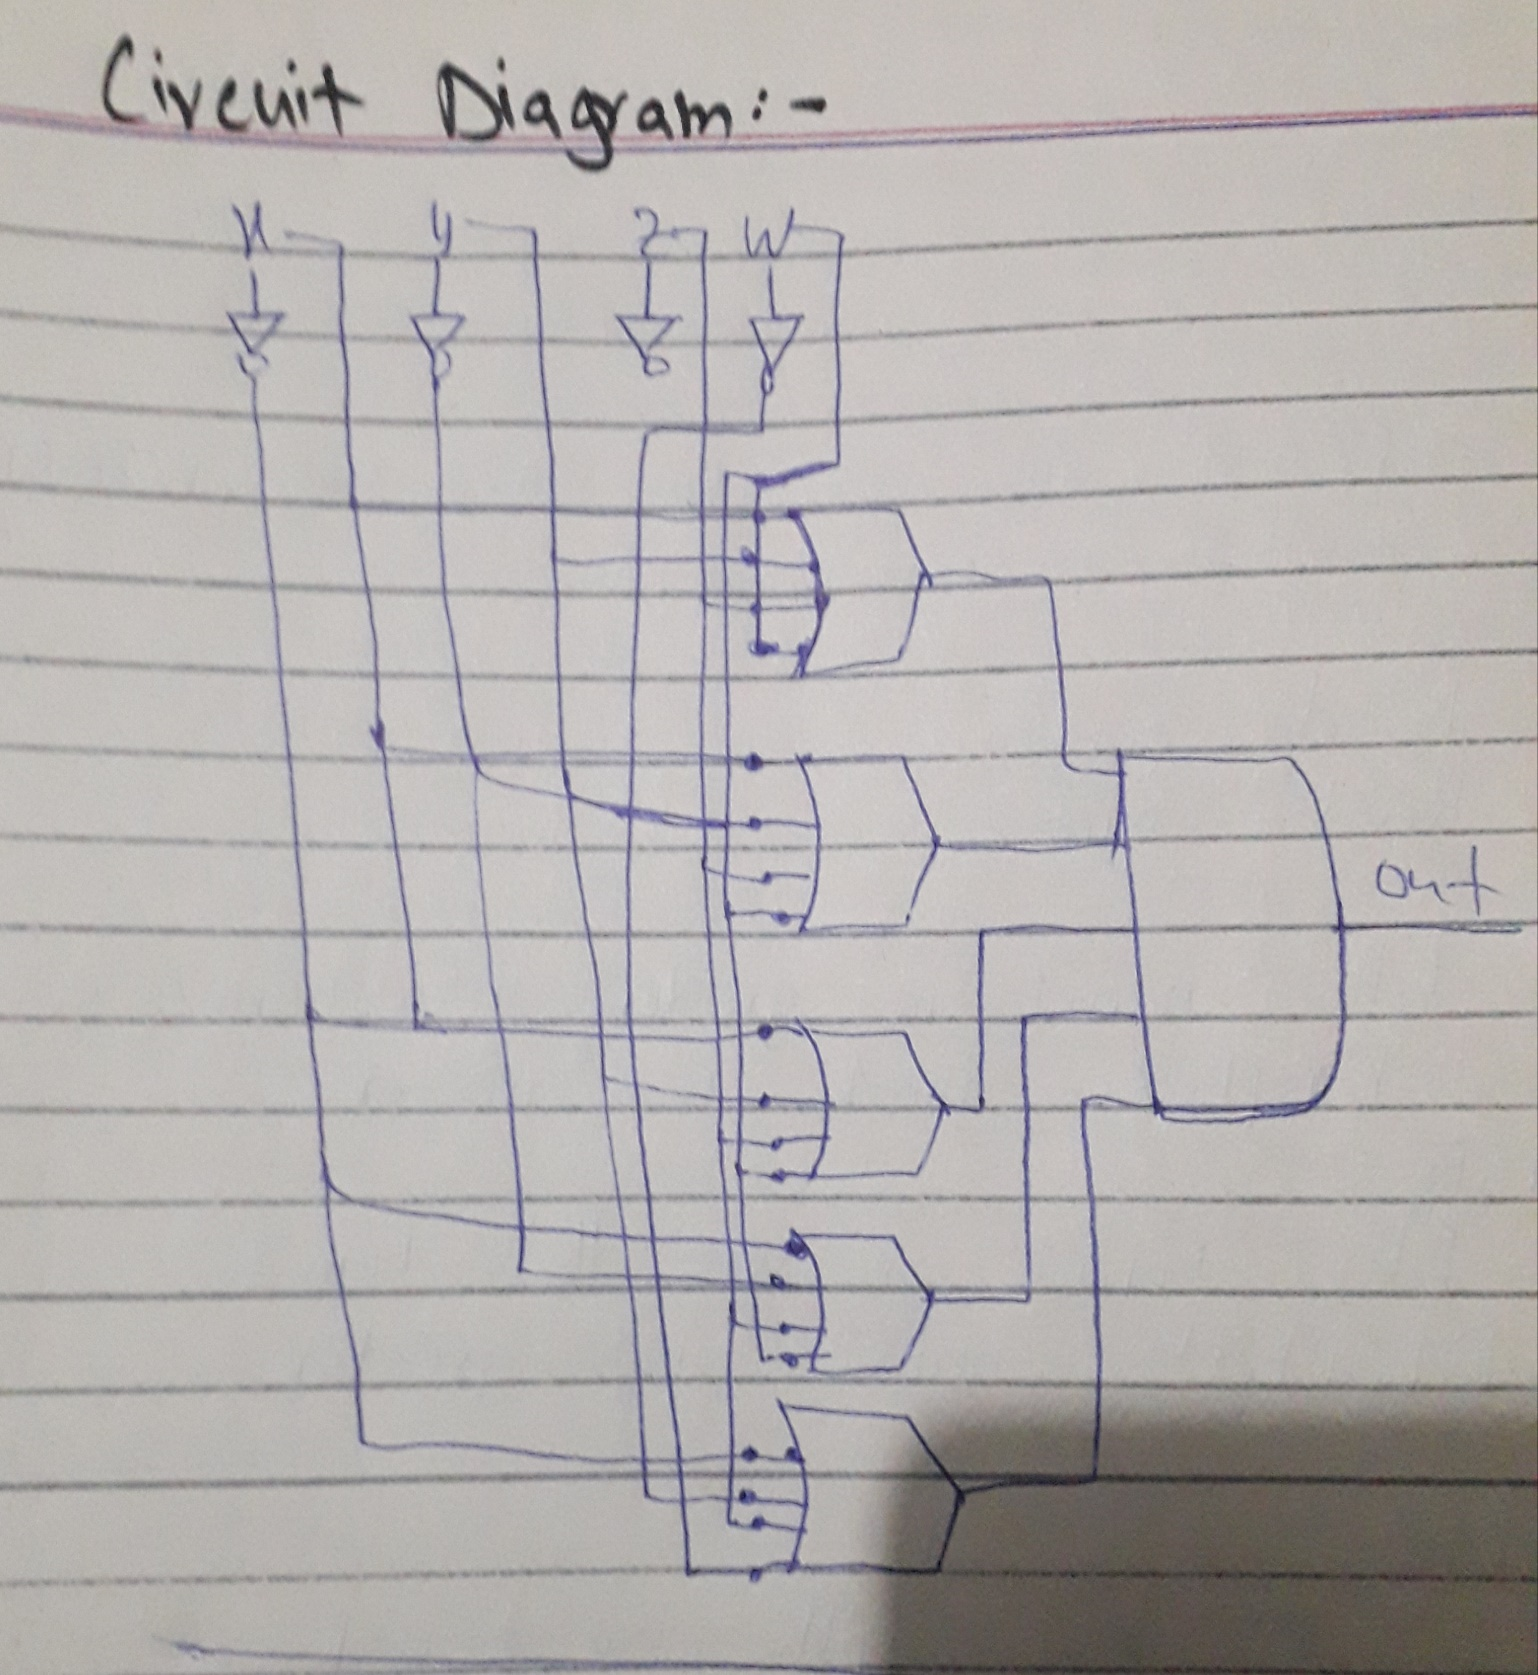 Circuit Diagram:-
x y z w
out